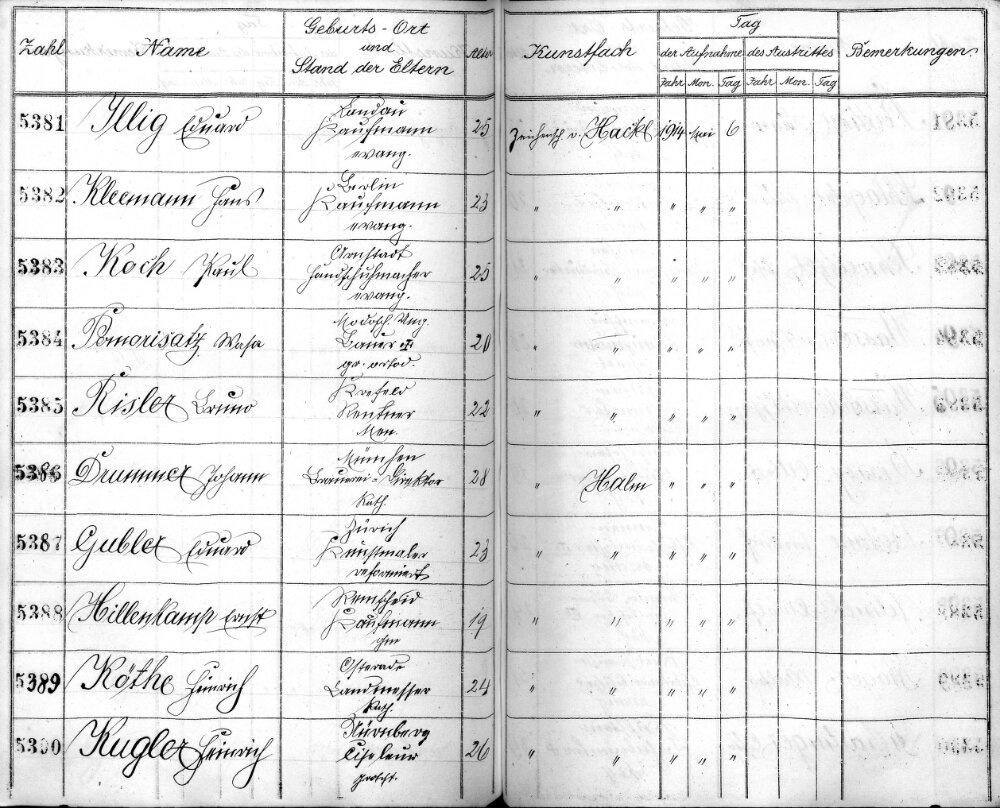 Zahl Name Geburts-Ort und Stand der Eltern Alter Kunstfach Tag der Aufnahme des Austrittes Bemerkungen
Jahr Mon. Tag Jahr Mon. Tag
5381 Illig Eduard Landau 25 Zeichensch. v. Hackl 1914 Mai 6
Kaufmann
evang.
5382 Kleemann Hans Berlin 23 " " " " "
Kaufmann
evang.
5383 Koch Paul Arnstadt 25 " " " " "
Handschuhmacher
evang.
5384 Pomorisatz Wasa Modosch. Ung. 20 " " " " "
Bauer
gr. ortod.
5385 Risler Bruno Krefeld 22 " " " " "
Rentner
Men.
5386 Drummer Johann München 28 " Halm " " "
Brauerei-Direktor
Kath.
5387 Gubler Eduard Zürich 23 " " " " "
Kunstmaler
reformiert
5388 Hillenkamp Ernst Remscheid 19 " " " " "
Kaufmann
5389 Köthe Heinrich Osterode 24 " " " " "
Landmesser
Kath.
5390 Kugler Heinrich Nürnberg 26 " " " " "
Ciseleur
protest.